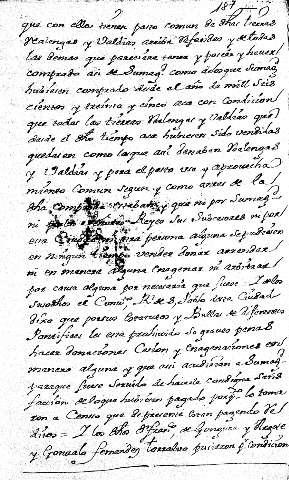 187
que con ellas tienen pasto comun de dhas tierras
Realengas y Valdias arriba referidas y de todas
las demas que pareciere tener y poseer y haver
comprado asi de su mag.d como a los que su mag.d
hubieren comprado desde el año de mill seis
cientos y treinta y cinco aca con Condicion
que todas las tierras Realengas y Valdias que
desde el dho tiempo aca hubieren sido vendidas
quedasen como las que asi dexaban Realengas
y Valdias y para el pasto uso y aprovecha
miento comun segun y como antes de la
dha compra estaban y que ni por su mag.d
ni Reyes sus Subcesores ni por
esta Ciudad ni otra persona alguna se pudiesen
en ningun tiempo vender donar arrendar
ni en manera alguna enagenar ni arbitrar
por causa alguna por necesaria que fuese
el Conv.to R.l de S. Pablo desta Ciudad
dixo que por sus Breves y Bullas de diferentes
Pontifices les era prohivido so graves penas
hacer donaciones Cesion y enagenaciones en
manera alguna y que asi acudirian a su mag.d
y aunque fuese servido de hacerle condigna Satis
facción de lo que hubieren pagado por q.e lo toma
ron a Censo que de presente estan pagando de
Y los dho fran.co de Gongora
y Gonzalo fernandez torralvo pusieron p.r condicion